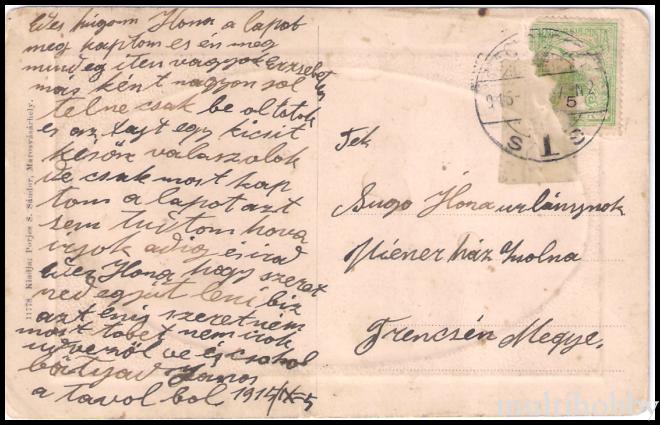 Édes húgom Ilona a lapot
meg kaptom es én meg
mindég iten vagyok Erzsebet
mas ként nagyon jol
telne csak be oltotok
es az fajt egy kicsit
késön valaszolok
de csak most kap
tom a lapot azt
sem tudtom hova
irjok adig és irad
Édes Ilona hogy szeret
ned együt leni biz
azt énis szeretném
most töbet nem irok
üdvezöl és csokol
bátyad Janos
a tavol bol 1915/IX-5
11778. Kiadja: Porjes S. Sándor, Marosvásárhely.
Tek
Ilona urlánynok
Wiener ház Zsolna
Trencsén Megye.
1
S S
multihobby